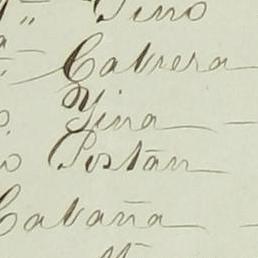 " Tino
Cabrera
Yina
Postan
Cabaña